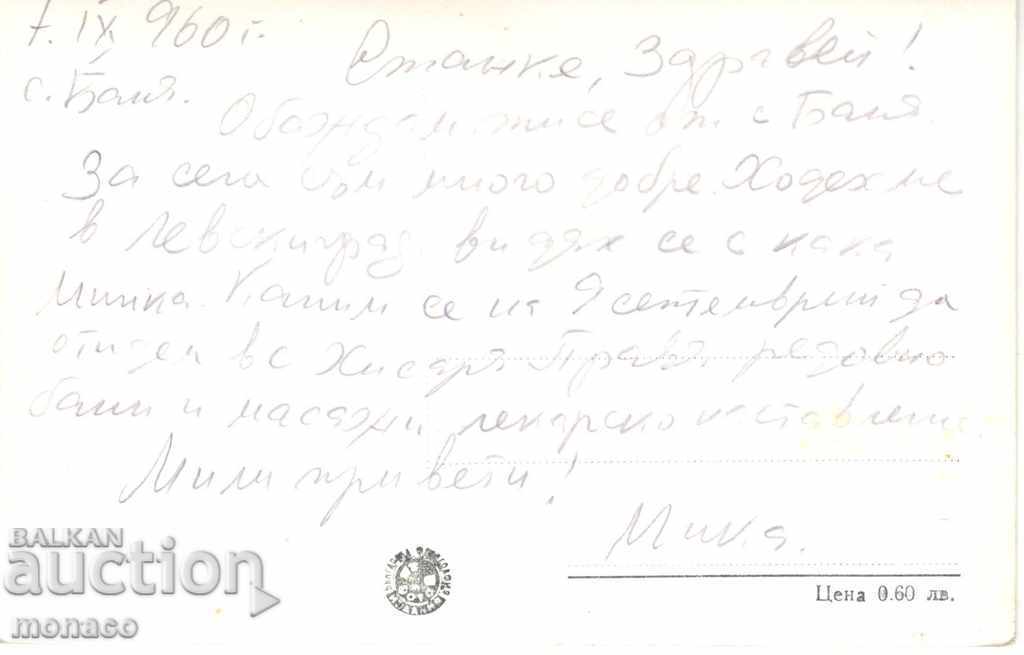 7. IX 960 г.
с. Баня.
Станке, Здравей!
Обаждам ти се от с Баня.
За сега съм много добре. Ходехме
в Левскиград видях се с кака
Минка. Каним се на 9 септемврий да
отидем в с Хисаря Правя редовно
бани и масажи лекарско наставление.
Мили привети!
Мика.
Цена 0.60 лв.
BALKAN
auction
monaco